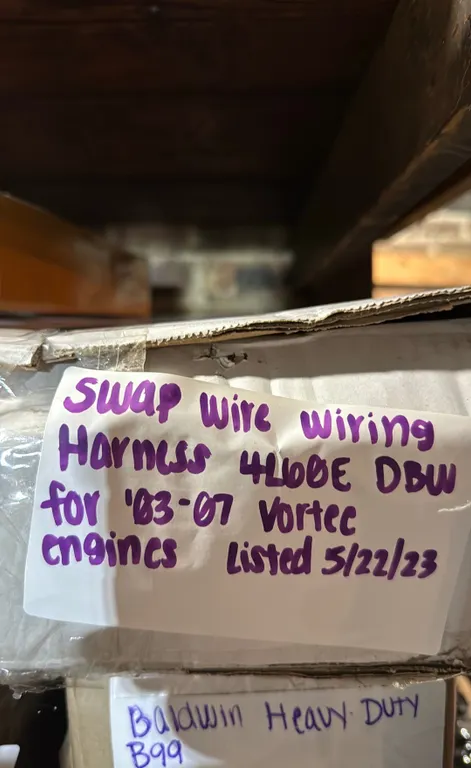 Swap Wire Wiring
Harness 4L60E DBW
for '03-07 Vortec
engines Listed 5/22/23
Baldwin Heavy Duty
B99